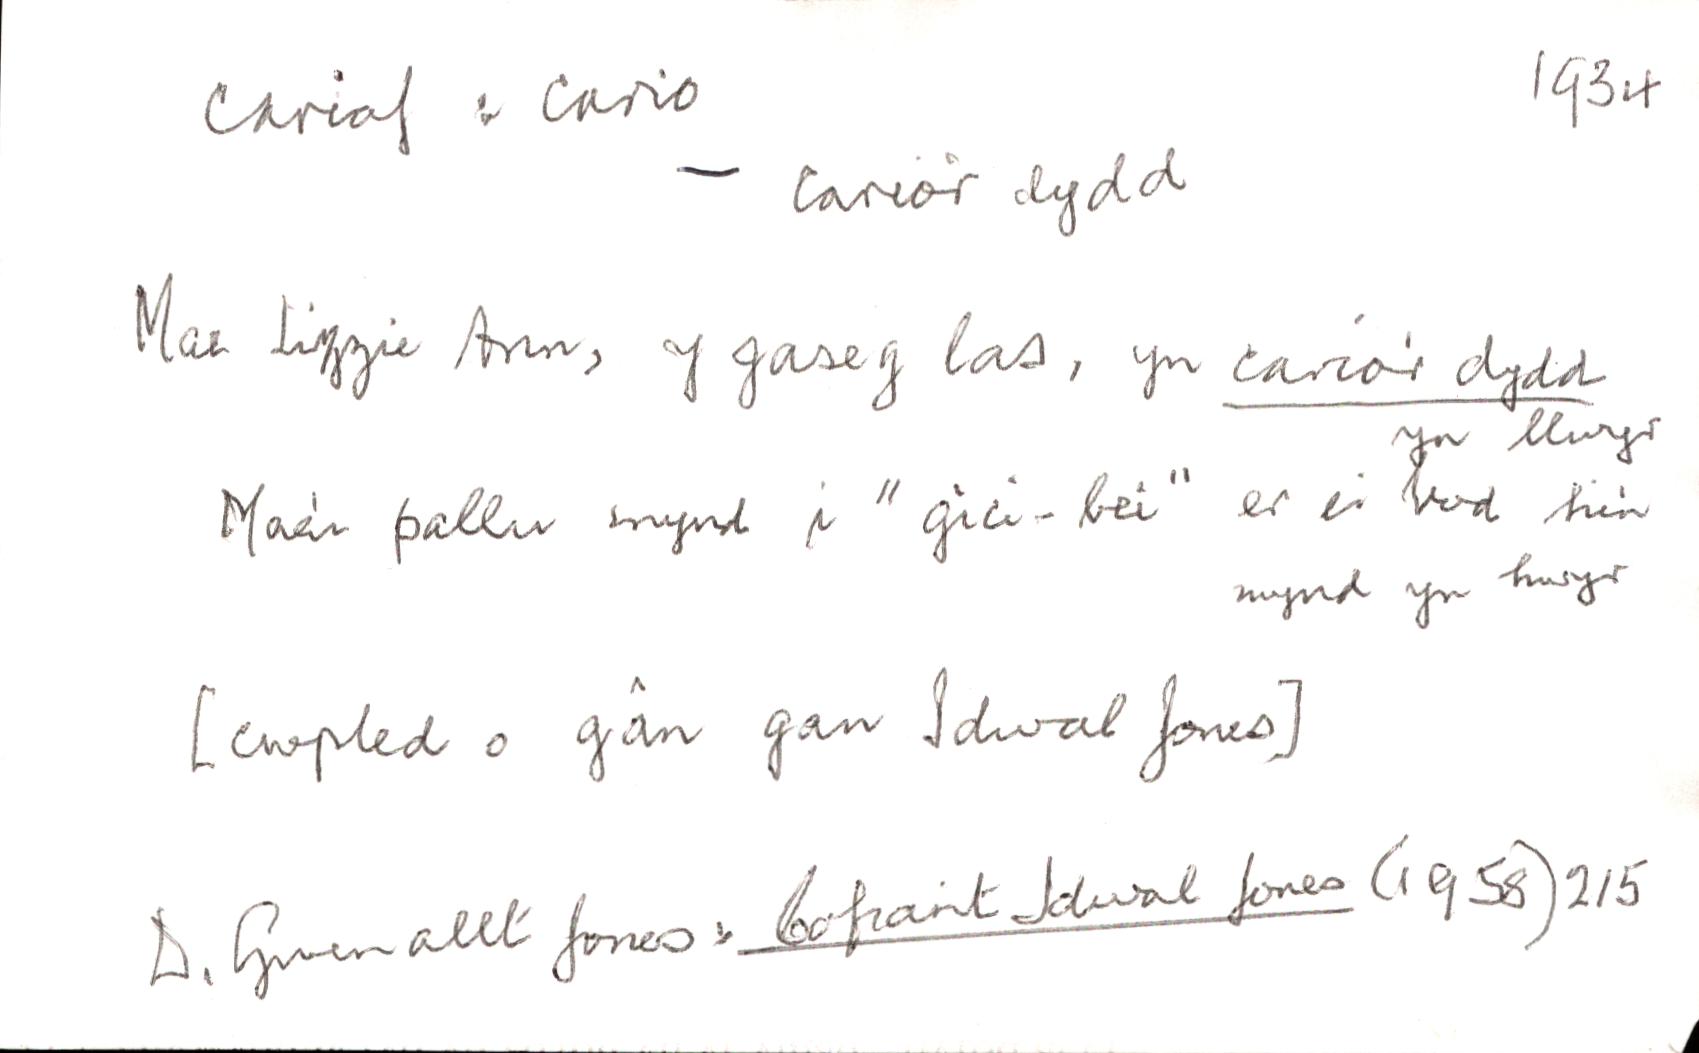 cariaf : cario 1934
– cario'r dydd
Mae Lizzie Ann, y gaseg las, yn cario'r dydd
yn llwyr
Mae'n pallu mynd i "gici-bei" er ei bod hi'n
mynd yn hwyr
[cwpled o gân gan Idwal Jones]
D. Gwenallt Jones : Cofiant Idwal Jones (1958) 215